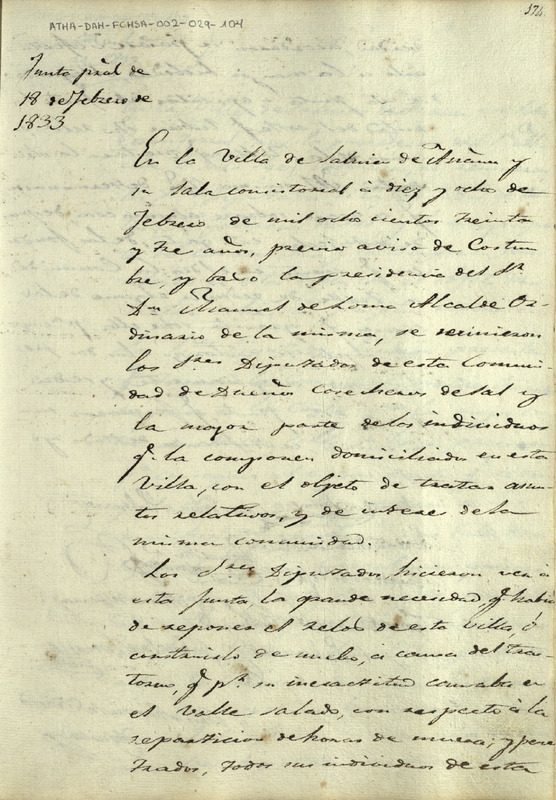 174.
ATHA-DAH-FCHSA-002-029-104
Junta gral de
18 de Febrero de
1833
En la Villa de Salinas de Añana y
su sala consistorial á diez y ocho de
Febrero de mil ocho cientos treinta
y tre años, previo aviso de Costum
bre, y baxo la presidencia del Sr
Dn Manuel de Loma Alcalde Or-
dinario de la misma, se reunieron
los Sres Diputados de esta Comuni-
dad de Dueños Cosecheros de sal y
la mayor parte de los individuos
qe la componen domiciliados en esta
Villa, con el objeto de tratar asun-
tos relativos, y de interes de la
misma comunidad.
Los Sres Diputados hicieron ver á
esta Junta, la grande necesidad qe habia
de reponer el relox de esta Villa, ó
construirlo de nuebo, á causa del tras-
torno, qe pr su inexactitud causaba en
el Valle salado, con respecto á la
reparticion de horas de muera; y pene
trados, todos sus individuos de esta